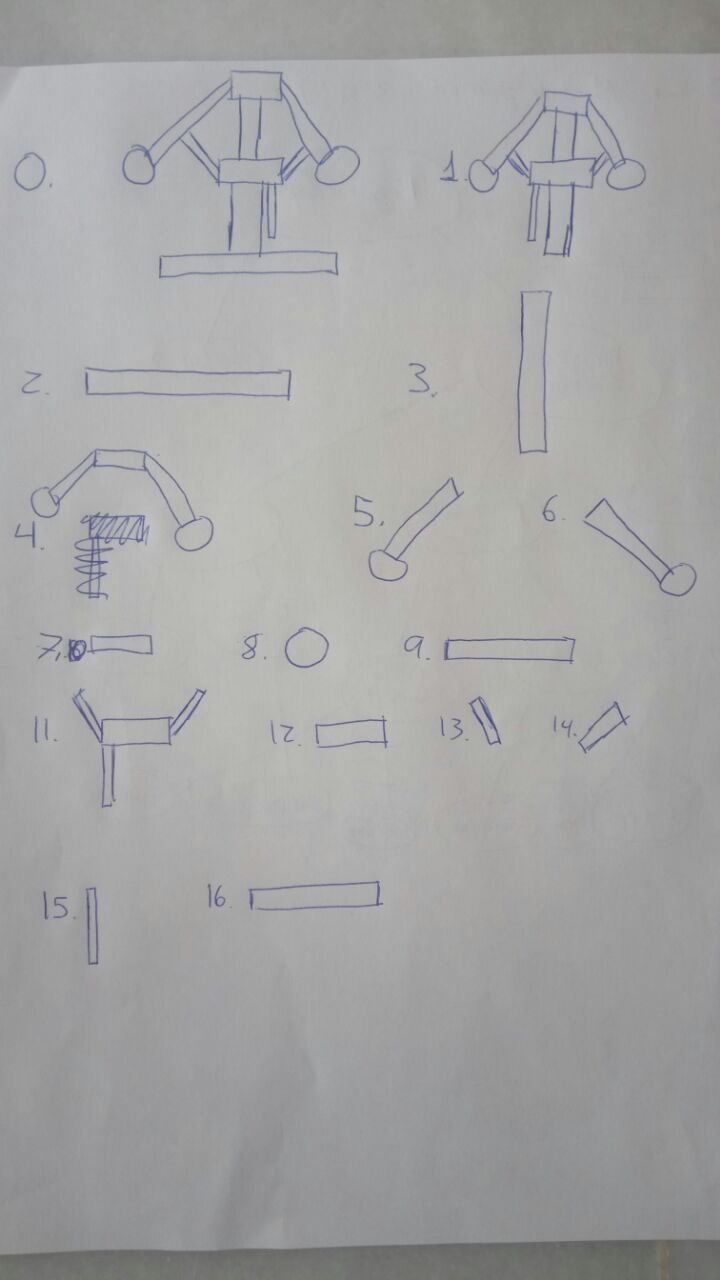 0. 1.
2. 3.
4. 5. 6.
7. 8. 9.
11. 12. 13. 14.
15. 16.